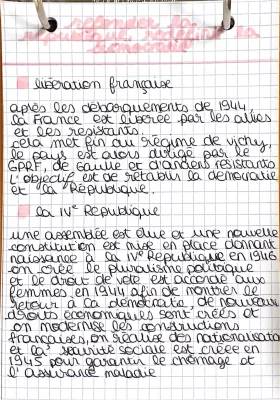 refonder la
république redéfinir la
démocratie
libération française
après les débarquements de 1944,
la France est libérée par les alliés
et les résistants.
cela met fin au régime de vichy,
le pays est alors dirigé par le
GPRF, de Gaulle et d'anciens résistants
L'objectif est de rétablir la démocratie
et la République.
la IVe République
une assemblée est élue et une nouvelle
constitution est mise en place donnant
naissance à la IVe République en 1946
on crée le pluralisme politique
et le droit de vote est accordé aux
femmes en 1944 afin de montrer le
retour à la démocratie, de nouveaux
droits économiques sont créés et
on modernise les constructions
françaises, on réalise des nationalisations
et la sécurité sociale est créée en
1945 pour garantir le chômage et
l'assurance maladie